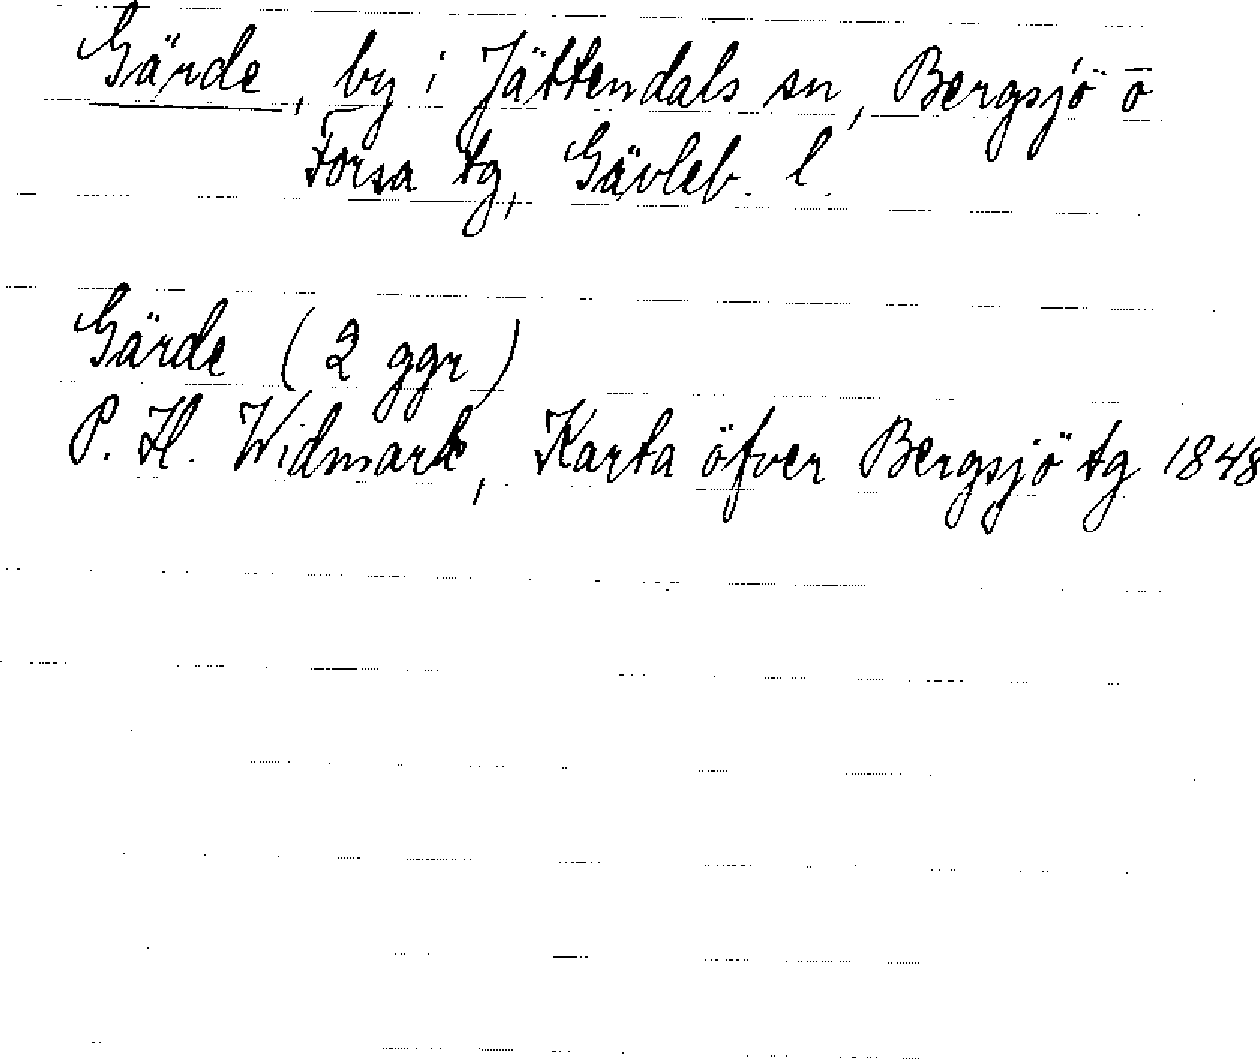 Gärde, by i Jättendals sn, Bergsjö o
Forsa tg, Gävleb. l.
Gärde (2 ggr)
P. H. Widmark, Karta öfver Bergsjö tg 1848